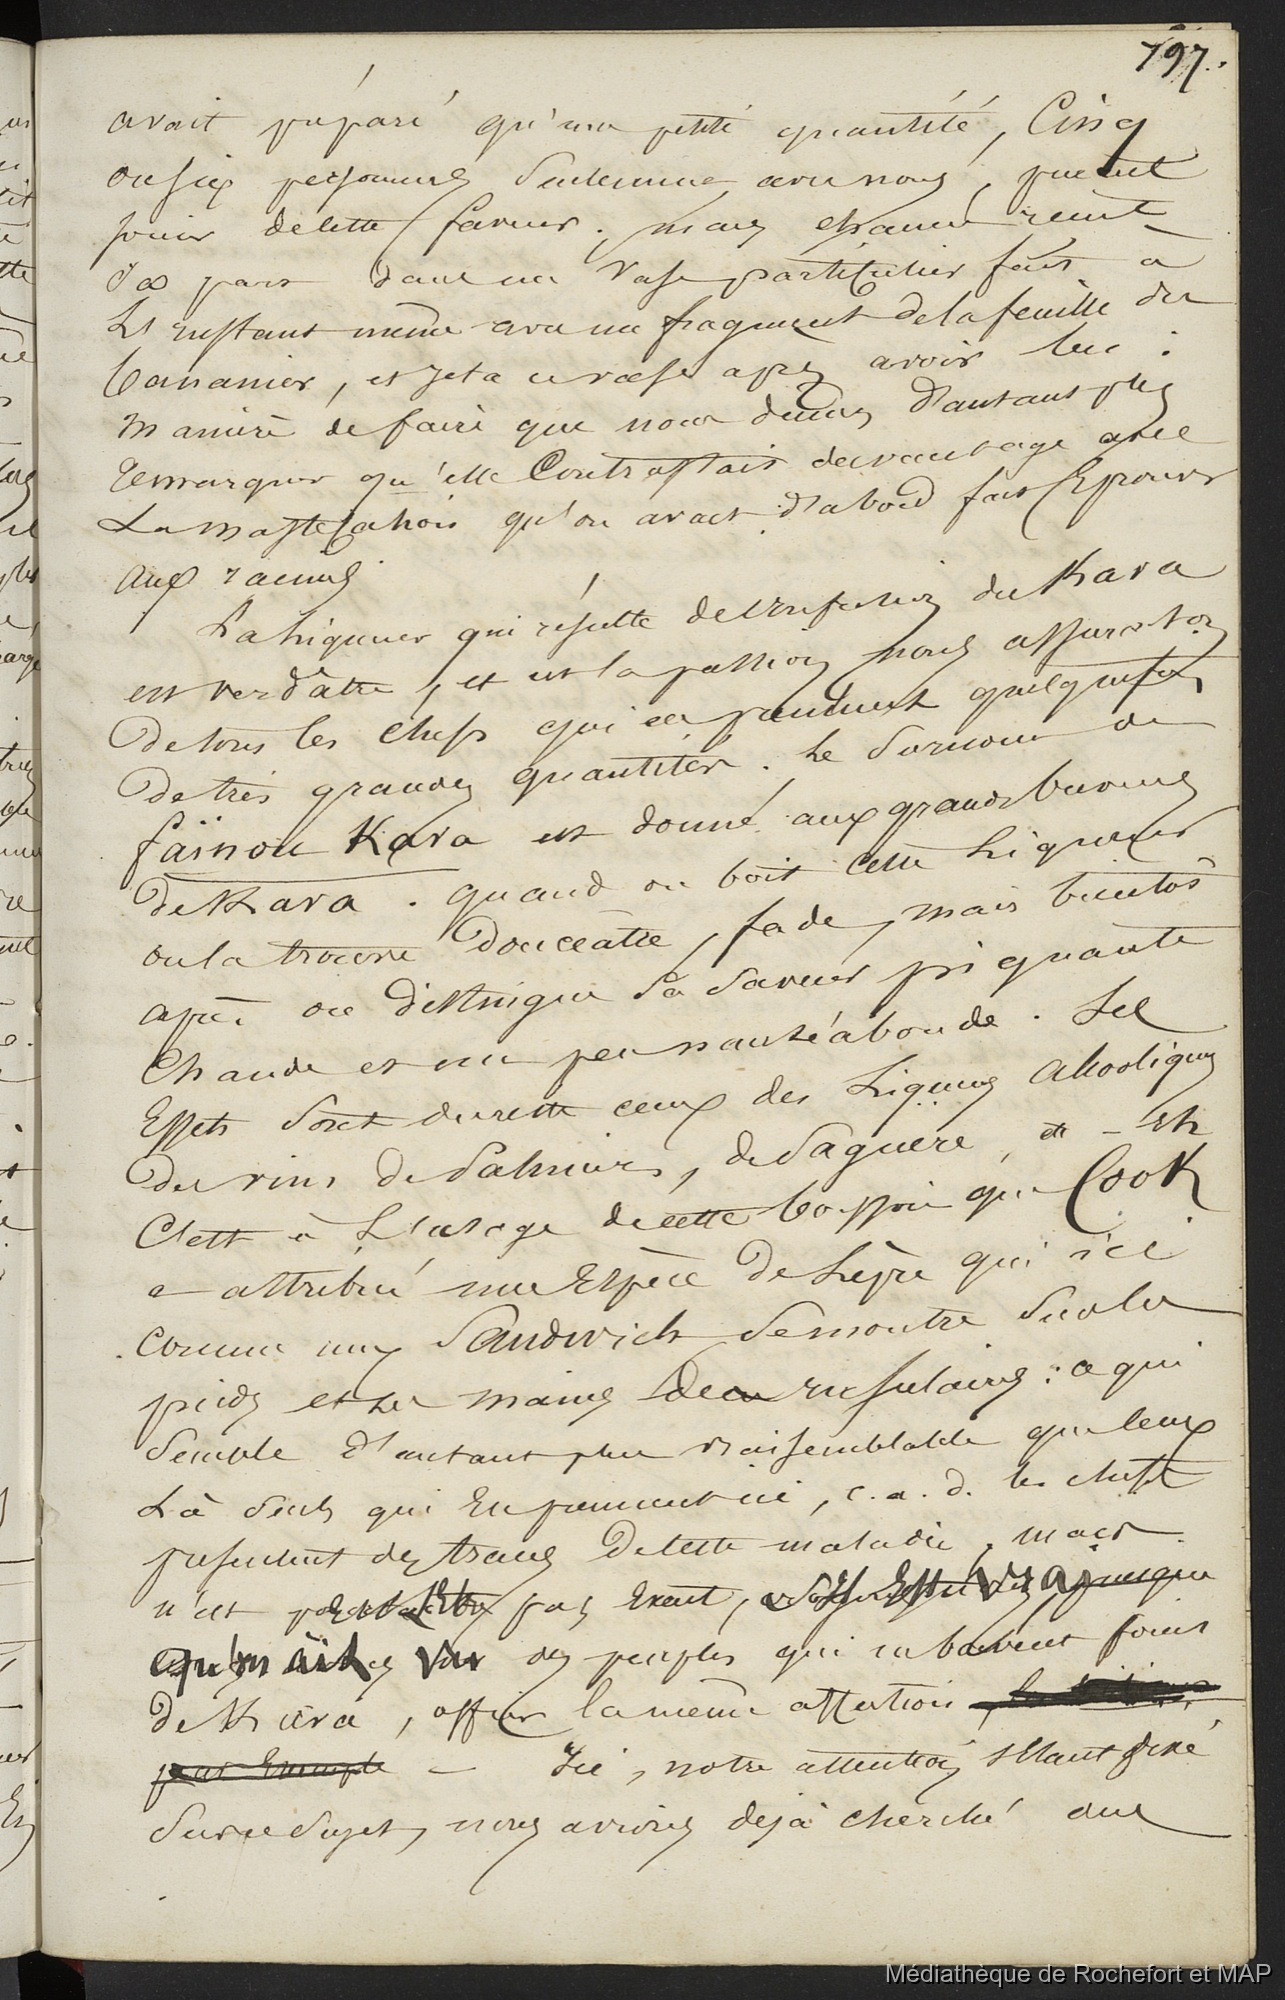 797.
avait préparé qu'une petite quantité, Cinq
ou six personnes seulement avec nous, purent
jouir de cette faveur. mais chacun recut
sa part dans un vase particulier fait à
L'instant même avec un fragment de la feuille du
bananier, et jeta ce vase après avoir bu :
maniere de faire que nous dûmes d'autant plus
remarquer qu'elle Contrastait davantage avec
La mastication qu'on avait d'abord fait Eprouver
aux racines
La Liqueur qui résulte de L'infusion du Kava
est verdâtre, et est la passion nous assura-t-on
De tous les chefs qui en prennent quelquefois
De très grandes quantités. Le Surnom de
faïnou Kava est donné aux grands buveurs
De Kava. quand on boit cette Liqueur
on la trouve Douceâtre, fade, mais bientôt
après on distingue Sa Saveur piquante
Chaude et un peu nauséabonde. Ses
Effets Sont du reste ceux des Liqueurs alcooliques
Du vins De Palmiers, de Saguere,
C'est à L'usage de cette boisson que Cook
a attribué une Espèce De Lèpre qui ici
comme aux Sandwich Se montre Sur les
pieds et les mains des insulaires : ce qui
Semble d'autant plus vraisemblable que ceux
Là Seuls qui En prennent ici, c. a. d. les chefs
présentent des traces De cette maladie, mais
n'est pas Exact,
qu'on ait vu des peuples qui ne boivent point
De Kava, offrir la même affection
par Exemple - Ici, notre attention S'étant fixé
Sur ce Sujet, nous avions déjà cherché aux
Médiathèque de Rochefort et MAP